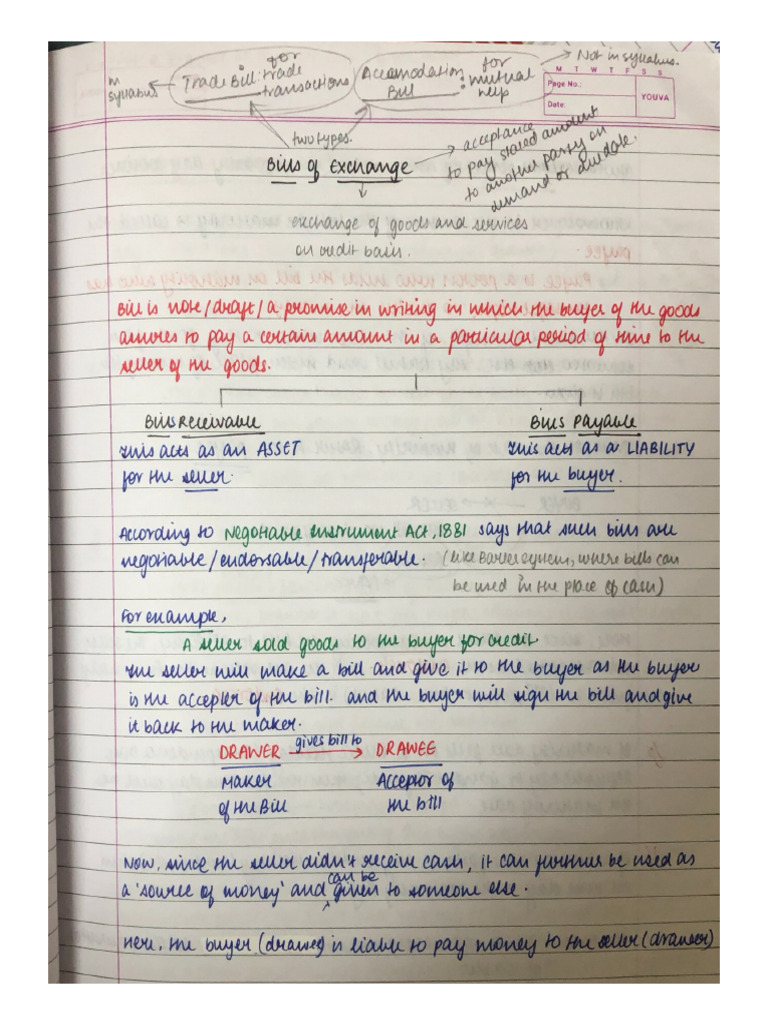 in syllabus
Trade Bill: for trade transactions
Accomodation Bill: for mutual help
Not in syllabus.
M T W T F S S
Page No.:
Date:
YOUVA
two types.
Bills of Exchange
acceptance
to pay stated amount
to another party on
demand or due date.
exchange of goods and services
on credit basis.
Bill is note/draft/a promise in writing in which the buyer of the goods
assures to pay a certain amount in a particular period of time to the
seller of the goods.
Bills Receivable
This acts as an ASSET
for the seller.
Bills Payable
This acts as a LIABILITY
for the buyer.
According to Negotiable Instrument Act, 1881 says that such bills are
negotiable/endorsable/transferable. (like Barter system, where bills can
be used in the place of cash)
For example,
A seller sold goods to the buyer for credit.
The seller will make a bill and give it to the buyer as the buyer
is the accepter of the bill. and the buyer will sign the bill and give
it back to the maker.
DRAWER gives bill to DRAWEE
Maker Acceptor of
of the Bill the bill
Now, since the seller didn't receive cash, it can further be used as
a 'source of money' and can be given to someone else.
Here, the buyer (drawee) is liable to pay money to the seller (drawer)